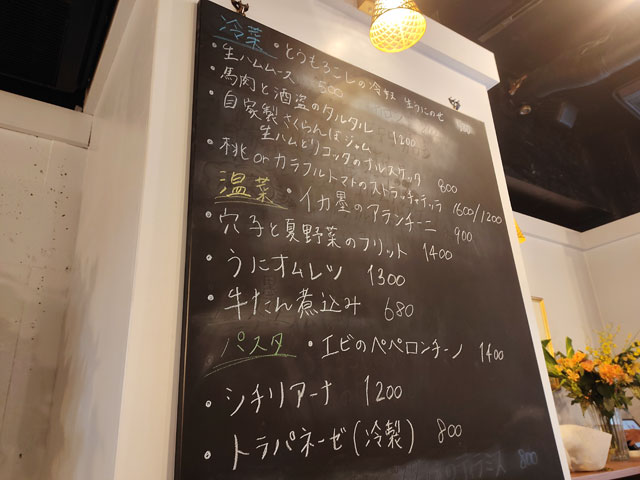 冷菜 ・とうもろこしの冷製 生うにのせ
・生ハムムース 500
・馬肉と酒盗のタルタル 1200
・自家製さくらんぼジャム
生ハムとリコッタのブルスケッタ 800
・桃orカラフルトマトのストラッチャテッラ 1600/1200
温菜 ・イカ墨のアランチーニ 900
・穴子と夏野菜のフリット 1400
・うにオムレツ 1300
・牛たん煮込み 680
パスタ ・エビのペペロンチーノ 1400
・シチリアーナ 1200
・トラパネーゼ(冷製) 800
ティラミス 800